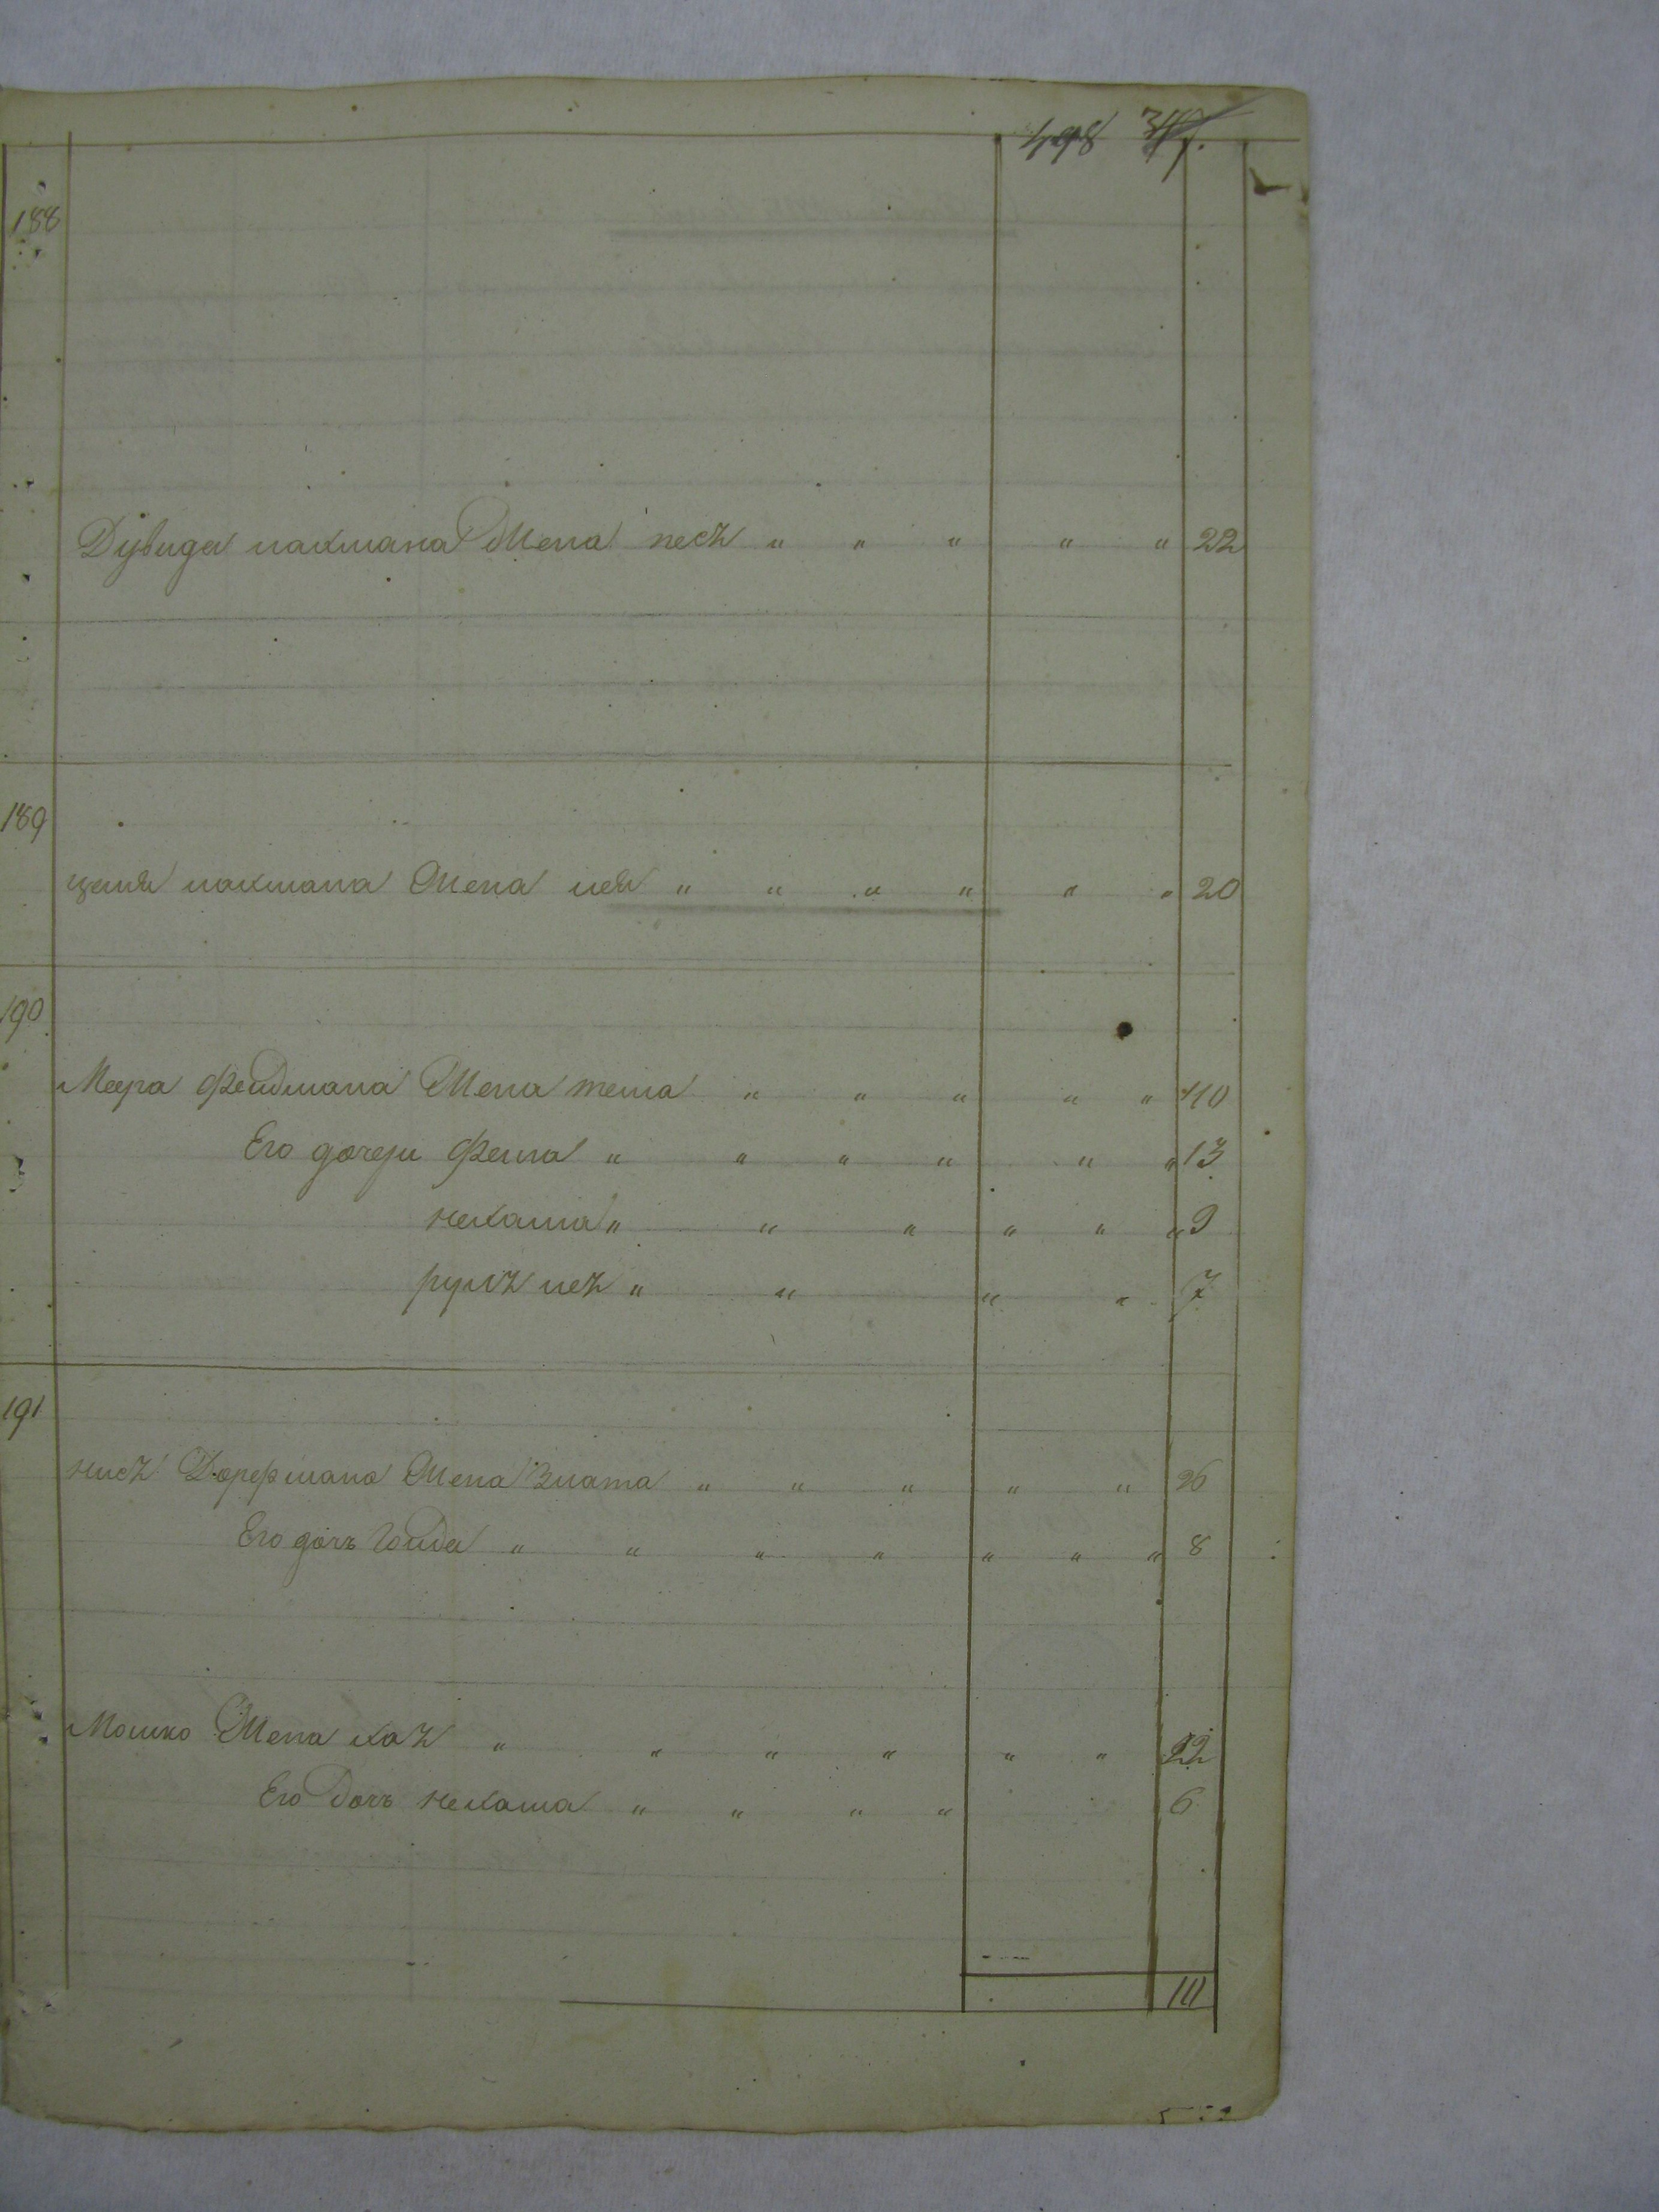 498 347.
188
Дувида лахмана Жена песя " " " " " 22
189
лахмана Жена лея " " " " " " 20
190
Меера Фелдмана Жена тема " " " " " 40
Его дочери Фейга " " " " " " 13
нехама " " " " " " 9
рухля лея " " " " 7
191
нися Дорфмана Жена Злата " " " " " 26
Его дочь Голда " " " " " " " 8
Мошко Жена хая " " " " " " 22
Его Дочь нехама " " " " 6
10